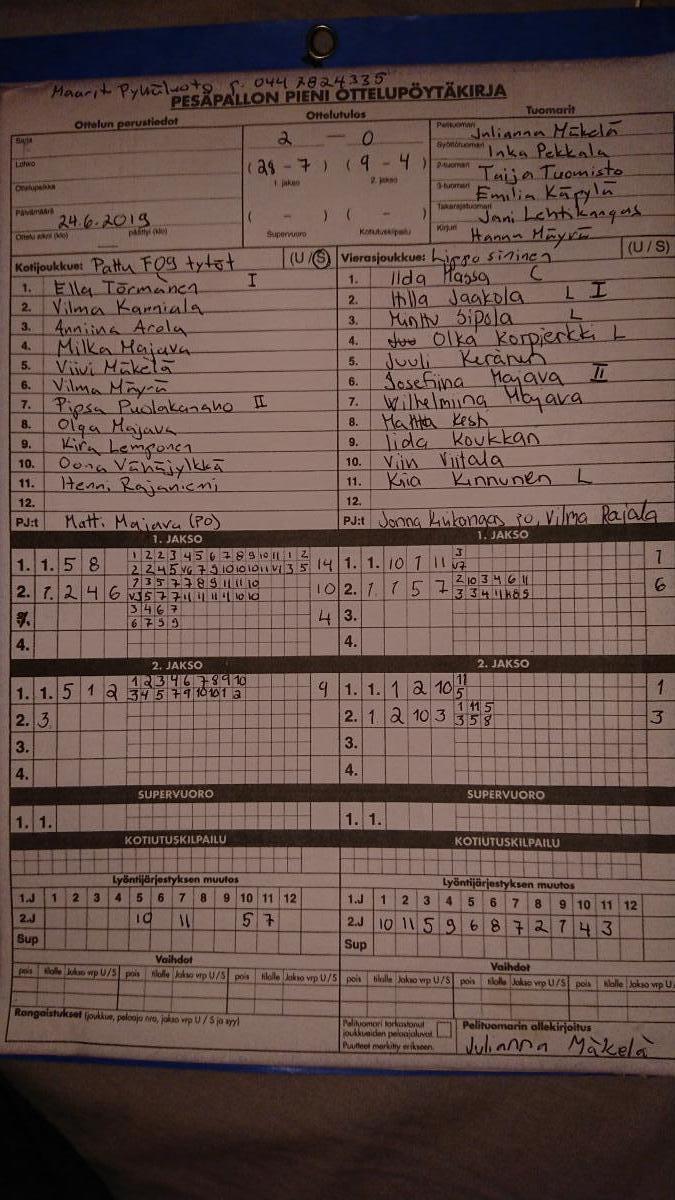 Maarit Pyhäluoto p. 044 7824335
PESÄPALLON PIENI OTTELUPÖYTÄKIRJA
Ottelun perustiedot
Sarja
Lohko
Ottelupaikka
Päivämäärä 24.6.2019
Ottelu alkoi (klo) päättyi (klo)
Ottelutulos
2 – 0
(28 - 7) (9 - 4)
1. jakso 2. jakso
( - ) ( - )
Supervuoro Kotiutuskilpailu
Tuomarit
Pelituomari Julianna Mäkelä
Syöttötuomari Inka Pekkala
2-tuomari Taija Tuomisto
3-tuomari Emilia Käpylä
Takarajatuomari Jani Lehtikangas
Kirjuri Hannu Mäyrä
Kotijoukkue: Pattu F09 tytöt (U / S)
1. Ella Törmänen I
2. Vilma Karniala
3. Anniina Arola
4. Milka Majava
5. Viivi Mäkelä
6. Vilma Mäyrä
7. Pipsa Puolakanaho II
8. Olga Majava
9. Kira Lemponen
10. Oona Vähäjylkkä
11. Henni Rajaniemi
12.
PJ:t Matti Majava (PO)
Vierasjoukkue: Lippo sininen (U / S)
1. Iida Massa C
2. Hilla Jaakola L I
3. Minttu Sipola L
4. Olka Korpierkki L
5. Juuli Keränen
6. Josefiina Majava II
7. Wilhelmiina Majava
8. Matta Kesti
9. Iida Koukkari
10. Viin Viitala
11. Kiia Kinnunen L
12.
PJ:t Jonna Kiukangas po, Vilma Rajala
1. JAKSO
1. 1. 5 8
1 2 2 3 4 5 6 7 8 9 10 11 1 2
2 2 4 5 V6 7 9 10 10 10 11 V1 3 5 14
2. 1. 2 4 6
1 3 5 7 7 8 9 11 11 10
V3 5 7 7 11 11 11 11 10 10 10
3 4 6 7
6 7 9 9 4
4.
1. JAKSO
1. 1. 10 1 11
3
V7 1
2. 1 1 5 7
2 10 3 4 6 11
3 3 4 11 K8 5 6
3.
4.
2. JAKSO
1. 1. 5 1 2
1 2 3 4 6 7 8 9 10
3 4 5 7 9 10 10 1 2 9
2. 3.
3.
4.
2. JAKSO
1. 1. 1 2 10
11
5 1
2. 1 2 10 3
1 11 5
3 5 8 3
3.
4.
SUPERVUORO
1. 1.
SUPERVUORO
1. 1.
KOTIUTUSKILPAILU
KOTIUTUSKILPAILU
Lyöntijärjestyksen muutos
1.J 1 2 3 4 5 6 7 8 9 10 11 12
2.J 10 11 5 7
Sup
Lyöntijärjestyksen muutos
1.J 1 2 3 4 5 6 7 8 9 10 11 12
2.J 10 11 5 9 6 8 7 2 1 4 3
Sup
Vaihdot
pois tilalle Jakso vrp U / S pois tilalle Jakso vrp U / S pois tilalle Jakso vrp U / S
Vaihdot
pois tilalle Jakso vrp U / S pois tilalle Jakso vrp U / S pois tilalle Jakso vrp U / S
Rangaistukset (joukkue, pelaaja nro, jakso vrp U / S ja syy)
Pelituomari tarkastanut
joukkueiden pelaajaluvat.
Puutteet merkitty erikseen.
Pelituomarin allekirjoitus
Julianna Mäkelä